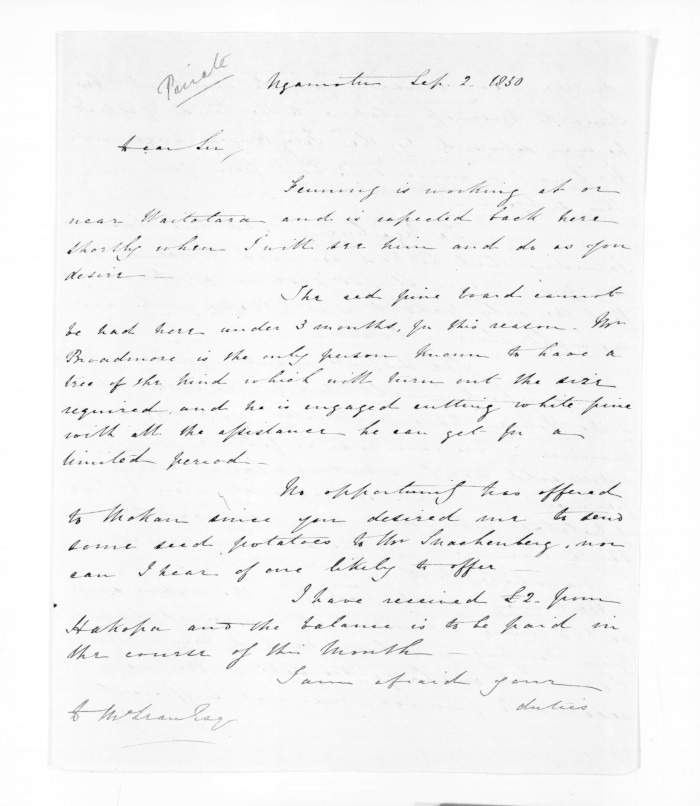 Private
Ngamotu Sep. 2. 1850
Dear Sir,
Fenning is working at or
near Waitotara and is expected back here
shortly when I will see him and do as you
desire -
The red pine board cannot
be had here under 3 months, for this reason. Mr
Broadmore is the only person known to have a
tree of the kind which will turn out the size
required, and he is engaged cutting white pine
with all the assistance he can get for a
limited period -
No opportunity has offered
to Mokau since you desired me to send
some seed potatoes to Mr Snachenberg, nor
can I hear of one likely to offer -
I have received £2. from
Hakopa and the balance is to be paid in
the course of this Month -
I am afraid your
duties
D McLean Esq